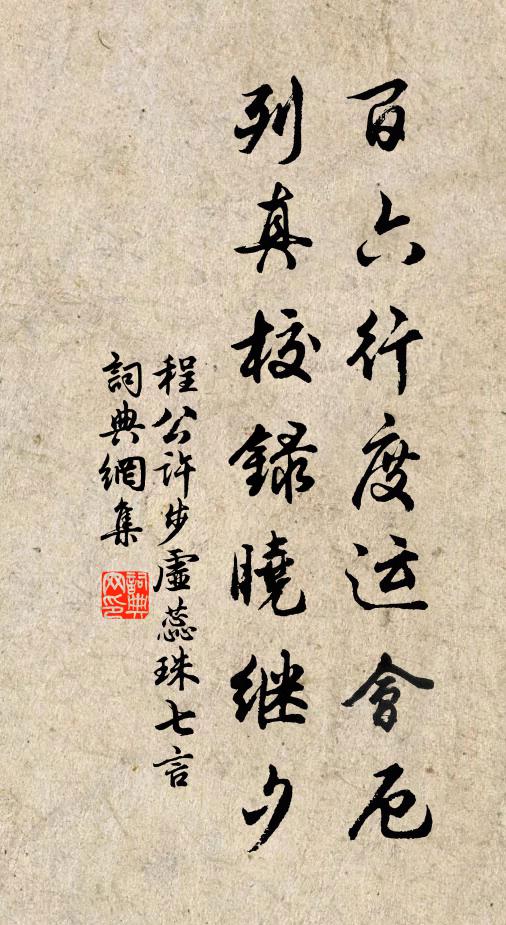 百六行度运會厄
列真校録曉继夕
程公許步虛蕊珠七言
詞典網集
詞典网印